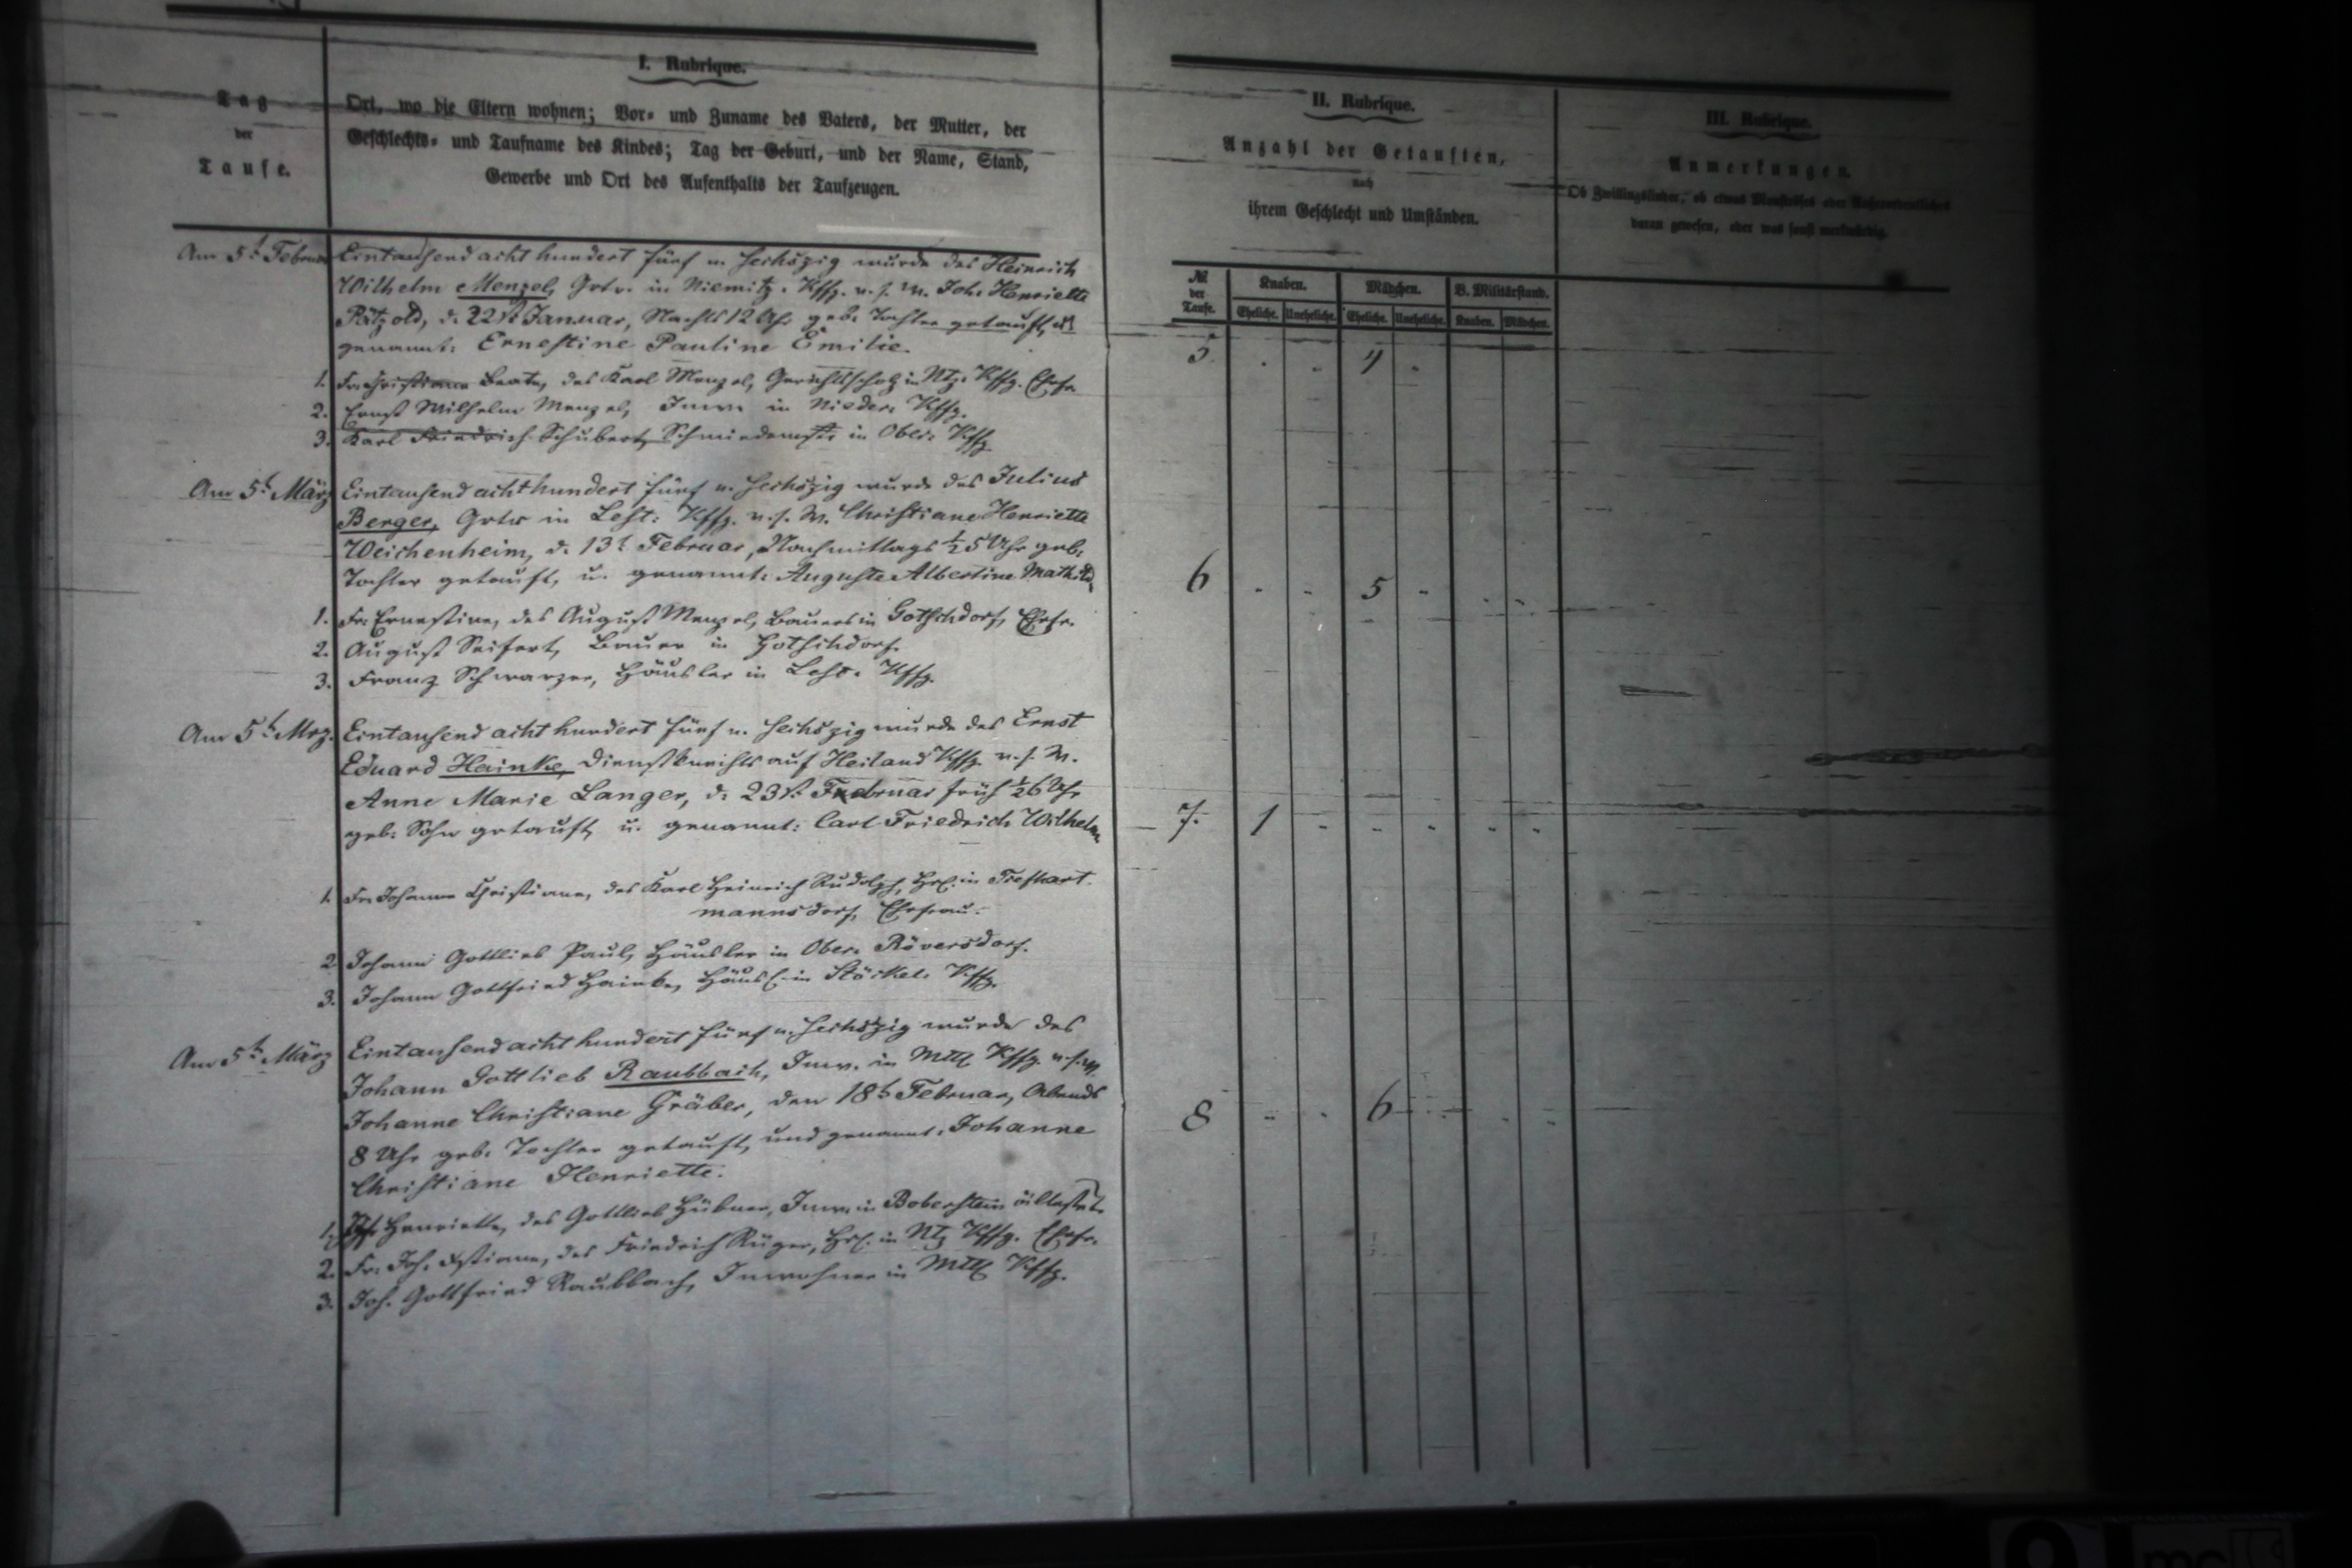 I. Rubrique.
Tag
der
Taufe.
Ort, wo die Eltern wohnen; Vor- und Zuname des Vaters, der Mutter, der
Geschlechts- und Taufname des Kindes; Tag der Geburt, und der Name, Stand,
Gewerbe und Ort des Aufenthalts der Taufzeugen.
II. Rubrique.
Anzahl der Getauften,
nach
ihrem Geschlecht und Umständen.
III. Rubrique.
Anmerkungen.
Ob Zwillingskinder, ob etwas Monströses oder Außerordentliches
daran gewesen, oder was sonst merkwürdig.
№ der Taufe.
Knaben. Mädchen. B. Militärstand.
Eheliche. Uneheliche. Eheliche. Uneheliche. Knaben. Mädchen.
Am 5t. Februar Eintausend acht hundert fünf u. sechszig wurde des Heinrich
Wilhelm Menzel, Grtr. in Niemitz. Kffg. u. s. W. Joh. Henriette
Pätzold, d. 22st. Januar, Nachts 12 Uhr geb. Tochter getauft, u.
genannt: Ernestine Pauline Emilie.
5. 4
1. Fr. Christiane Beate, des Karl Menzel, Gerichtsscholz in Ntz. Kffg. Ehefr.
2. Ernst Wilhelm Menzel, Inw. in Nieder. Kffg.
3. Karl Friedrich Schubert, Schmiedemstr in Ober. Kffg.
Am 5t. März Eintausend acht hundert fünf u. sechszig wurde des Julius
Berger, Grtr in Lest: Kffg. u. s. W. Christiane Henriette
Weichenheim, d. 13t. Februar, Nachmittags ½5 Uhr geb.
Tochter getauft, u. genannt: Auguste Albertine Mathild.
6 5
1. Fr. Ernestine, des August Menzel, Bauers in Gotschdorf, Ehefr.
2. August Seifert, Bauer in Gotschdorf.
3. Franz Schwarzer, Häusler in Lest. Kffg.
Am 5t. Mrz. Eintausend acht hundert fünf u. sechszig wurde des Ernst
Eduard Hainke, Dienstknechts auf Heiland Kffg. u. s. W.
Anne Marie Langer, d. 23st. Februar früh ½6 Uhr
geb. Sohn getauft, u. genannt: Carl Friedrich Wilhelm
7. 1
1. Fr. Johanne Christiane, des Karl Heinrich Rudolph, Hrl. in Tiefhart-
mannsdorf, Ehefrau.
2. Johann Gottlieb Paul, Häusler in Ober. Röversdorf.
3. Johann Gottfried Hainke, Häusl. in Stöckel. Kffg.
Am 5t. März Eintausend acht hundert fünf u. sechszig wurde des
Johann Gottlieb Raubbach, Inw. in Mttl Kffg. u. s. W.
Johanne Christiane Gräber, den 18t. Februar, Abends
8 Uhr geb. Tochter getauft, und genannt: Johanne
Christiane Henriette.
8 6
1. Henriette, des Gottlieb Hübner, Inw. in Boberstein ältest. T.
2. Fr. Joh. Xstiane, des Friedrich Rüger, Hrl. in Ntz Kffg. Ehefr.
3. Joh. Gottfried Raubbach, Inwohner in Mttl Kffg.